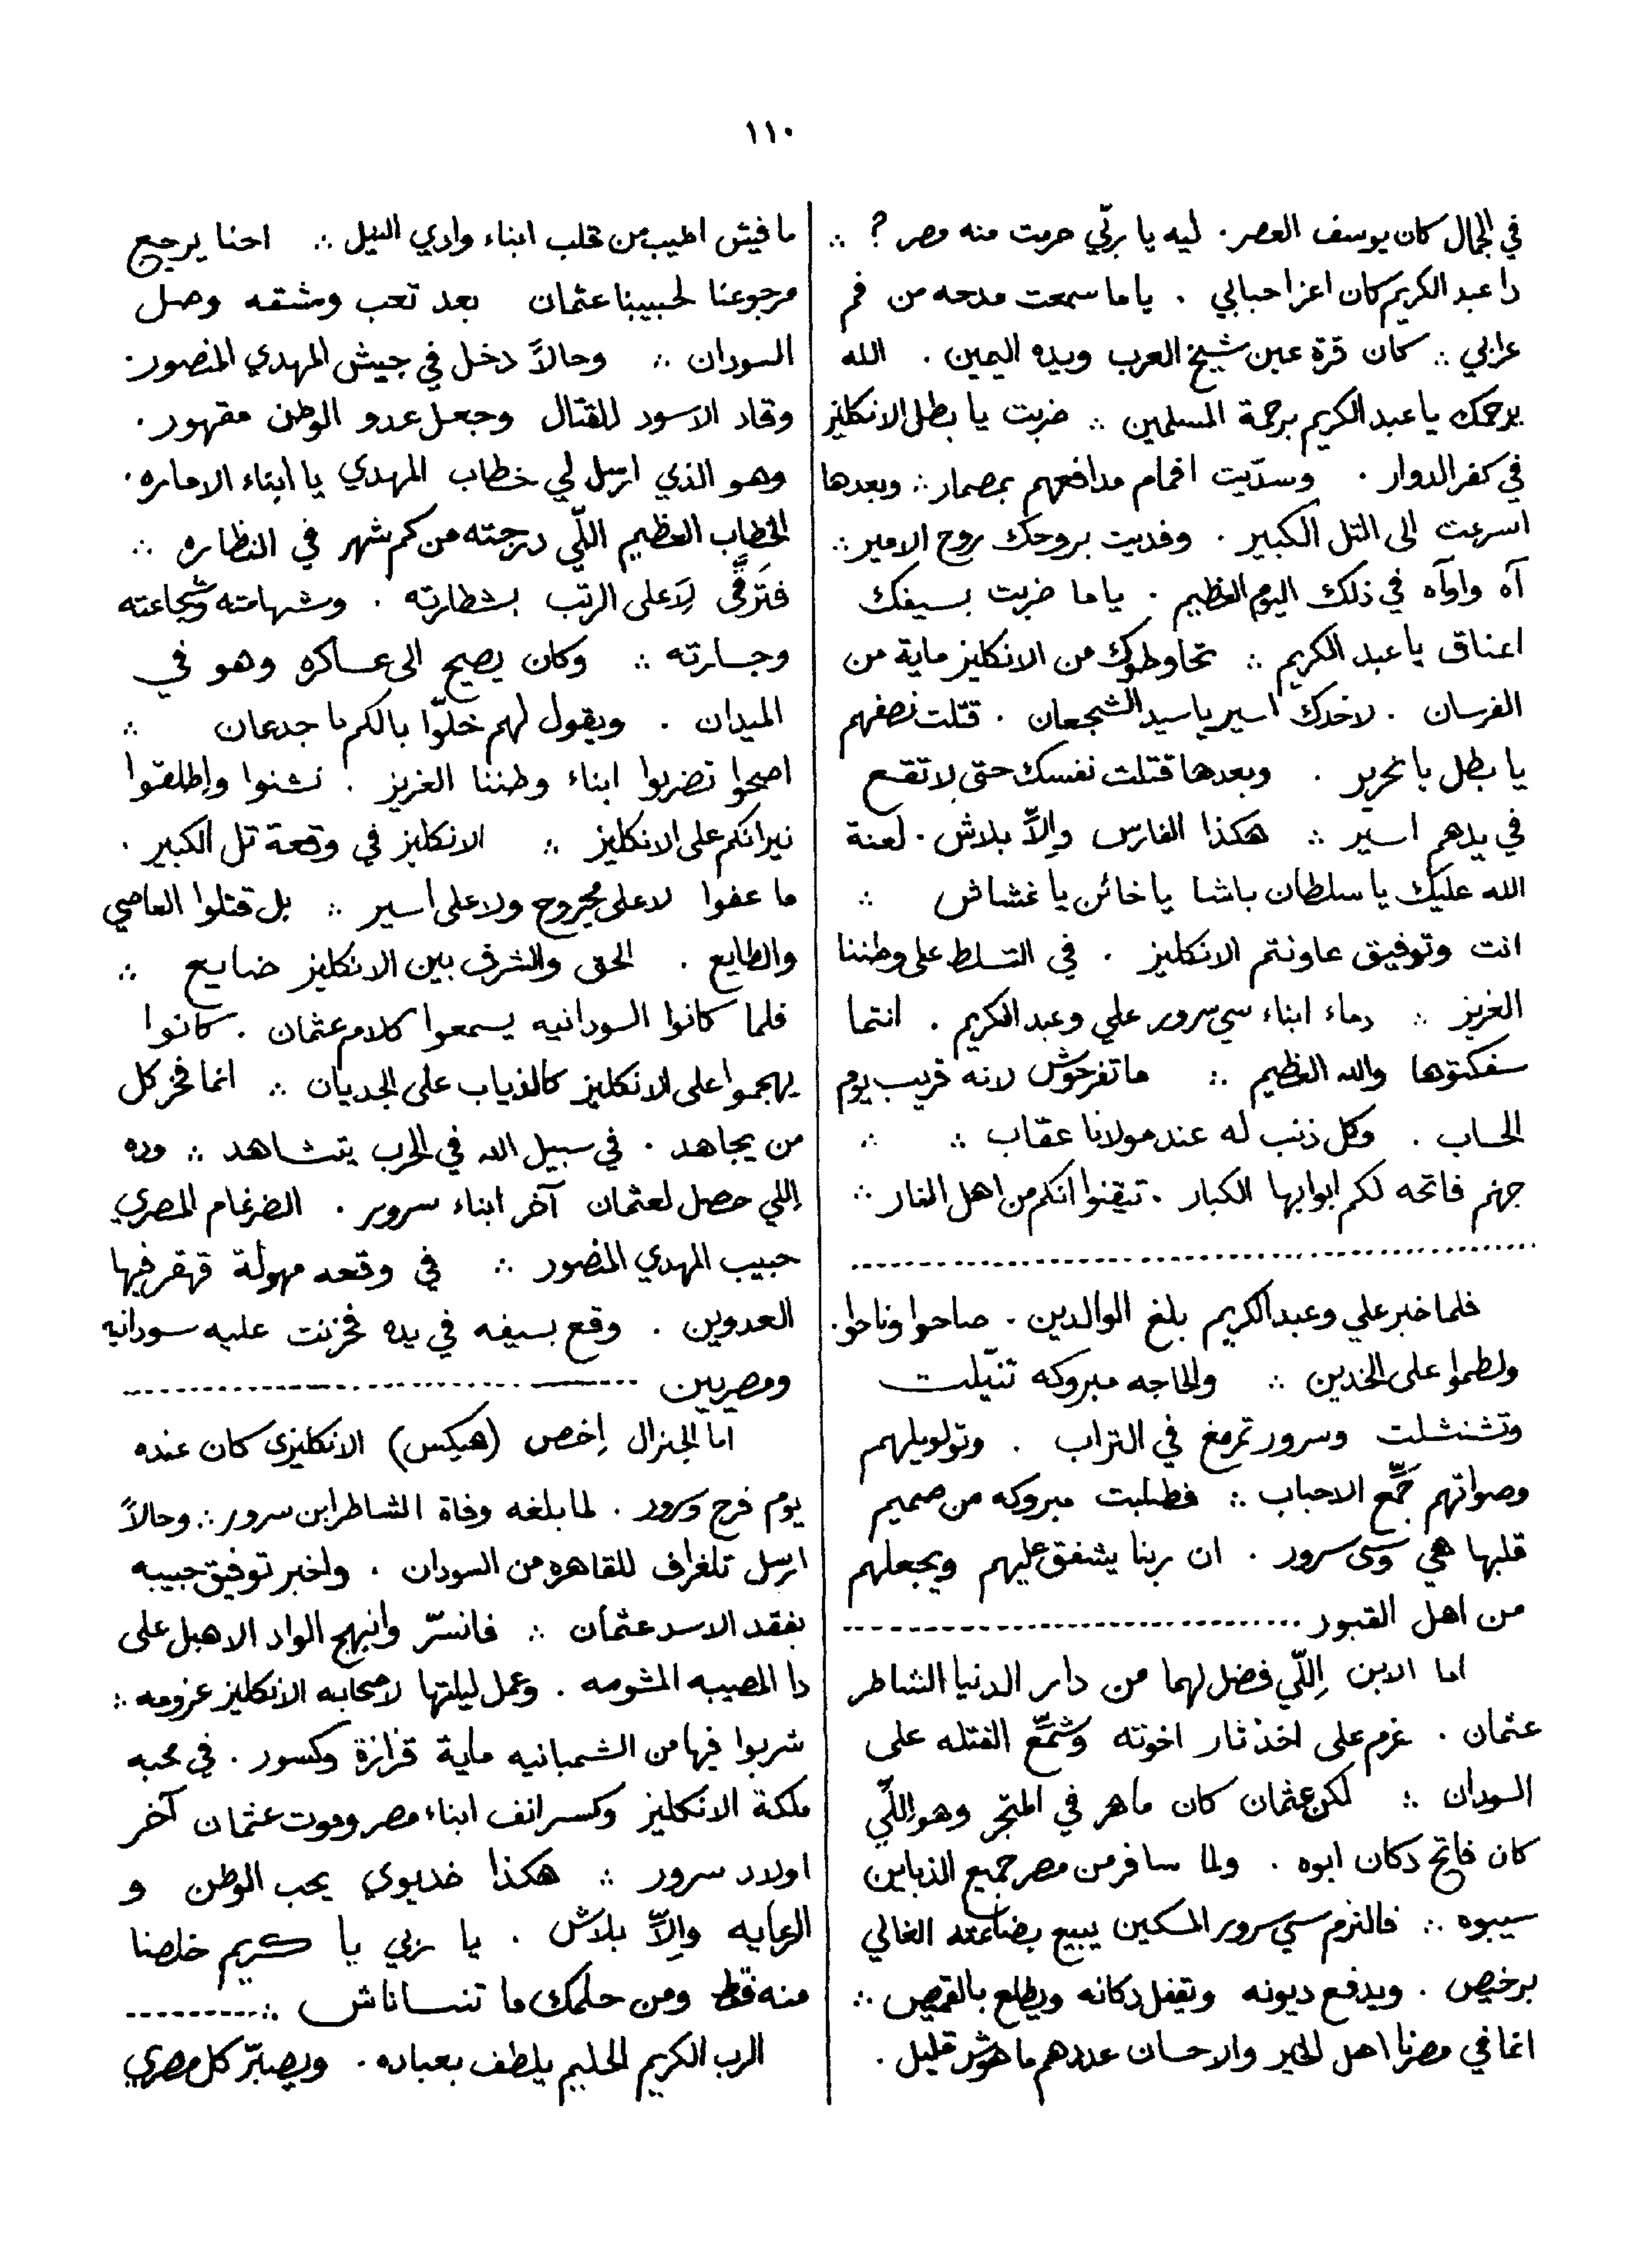 ١١٠
في الجمال كان يوسف العصر . ليه يا ربّي حرمت منه مصر ? ∴
دا عبد الكريم كان اعز احبابي . ياما سمعت مدحه من فم
عرابي ∴ كان قرة عين شيخ العرب ويده اليمين . الله
يرحمك يا عبد الكريم برحمة المسلمين ∴ ضربت يا بطل الانكليز
في كفر الدوار . وسدّيت افمام مدافعهم بمصمار ∴ وبعدها
اسرعت الى التل الكبير . وفديت بروحك روح الامير ∴
آه واوآه في ذلك اليوم العظيم . ياما ضربت بسيفك
اعناق يا عبد الكريم ∴ تحاوطوك من الانكليز ماية من
الفرسان . لاخدك اسير يا سيد الشجعان . قتّلت نصفهم
يا بطل يا نحرير . وبعدها قتلت نفسك حتى لا تقع
في يدهم اسير ∴ هكذا الفارس وإلاّ بلاش . لعنة
الله عليك يا سلطان باشا يا خائن يا غشاش ∴
انت وتوفيق عاونتم الانكليز . في التسلط على وطننا
العزيز ∴ دماء ابناء سي سرور علي وعبد الكريم . انتما
سفكتوها والله العظيم ∴ ما تفرحوش لانه قريب يوم
الحساب . وكل ذنب له عند مولانا عقاب ∴ ∴
جهنم فاتحه لكم ابوابها الكبار . تيقنوا انكم من اهل النار ∴
فلما خبر علي وعبد الكريم بلغ الوالدين . صاحوا وناحوا .
ولطموا على الخدين ∴ والحاجه مبروكه تنيّلت
وتشنشلت وسرور تمرمغ في التراب . وتولويلهم
وصواتهم جمّع الاحباب ∴ فطلبت مبروكه من صميم
قلبها هي وسي سرور . ان ربنا يشفق عليهم ويجعلهم
من اهل القبور
اما الابن إللّي فضل لهما من دار الدنيا الشاطر
عثمان . عزم على اخذ ثار اخوته وشمّع الفتله على
السودان ∴ لكن عثمان كان ماهر في المتجر وهو إللّي
كان فاتح دكان ابوه . ولما سافر من مصر جميع الذباين
سيبوه ∴ فالتزم سي سرور المسكين يبيع بضاعته الغالي
برخيص . ويدفع ديونه ويقفل دكانه ويطلع بالقميص ∴
انما في مصرنا اهل الخير والاحسان عددهم ما هوش قليل .
ما فيش اطيب من قلب ابناء وادي النيل ∴ احنا يرجع
مرجوعنا لحبيبنا عثمان بعد تعب ومشقه وصل
السودان ∴ وحالاً دخل في جيش المهدي المنصور .
وقاد الاسود للقتال وجعل عدو الوطن مقهور .
وهو الذي ارسل لي خطاب المهدي يا ابناء الاماره .
الخطاب العظيم اللّي درجته من كم شهر في النظاره ∴
فترقّى لاعلى الرتب بشطارته . وشهامته وشجاعته
وجسارته ∴ وكان يصيح الى عساكره وهو في
الميدان . ويقول لهم خلّوا بالكم يا جدعان ∴
اصحوا تضربوا ابناء وطننا العزيز . نشنوا واطلقوا
نيرانكم على الانكليز ∴ الانكليز في وقعة تل الكبير .
ما عفوا لا على مجروح ولا على اسير ∴ بل قتلوا العاصي
والطايع . الحق والشرف بين الانكليز ضايع ∴
فلما كانوا السودانيه يسمعوا كلام عثمان . كانوا
يهجموا على الانكليز كالذياب على الجديان ∴ انما فخر كل
من يجاهد . في سبيل الله في الحرب يتشاهد ∴ وده
إللي حصل لعثمان آخر ابناء سرور . الضرغام المصري
حبيب المهدي المنصور ∴ في وقعه مهولة قهقر فيها
العدوين . وقع بسيفه في يده فحزنت عليه سودانيه
ومصريين
اما الجنرال إخص (هيكس) الانكليزي كان عنده
يوم فرح وسرور . لما بلغه وفاة الشاطر ابن سرور ∴ وحالاً
ارسل تلغراف للقاهره من السودان . واخبر توفيق حبيبه
بفقد الاسد عثمان ∴ فانسرّ وانبهج الواد الاهبل على
دا المصيبه المشومه . وعمل ليلتها لاصحابه الانكليز عزومه ∴
شربوا فيها من الشمبانيه ماية قزازة وكسور . في محبه
ملكة الانكليز وكسر انف ابناء مصر وموت عثمان آخر
اولاد سرور ∴ هكذا خديوي يحب الوطن و
الرعايه وإلاّ بلاش . يا ربي يا كريم خلصنا
منه قط ومن حلمك ما تنساناش ∴
الرب الكريم الحليم يلطف بعباده . ويصبّر كل مصري